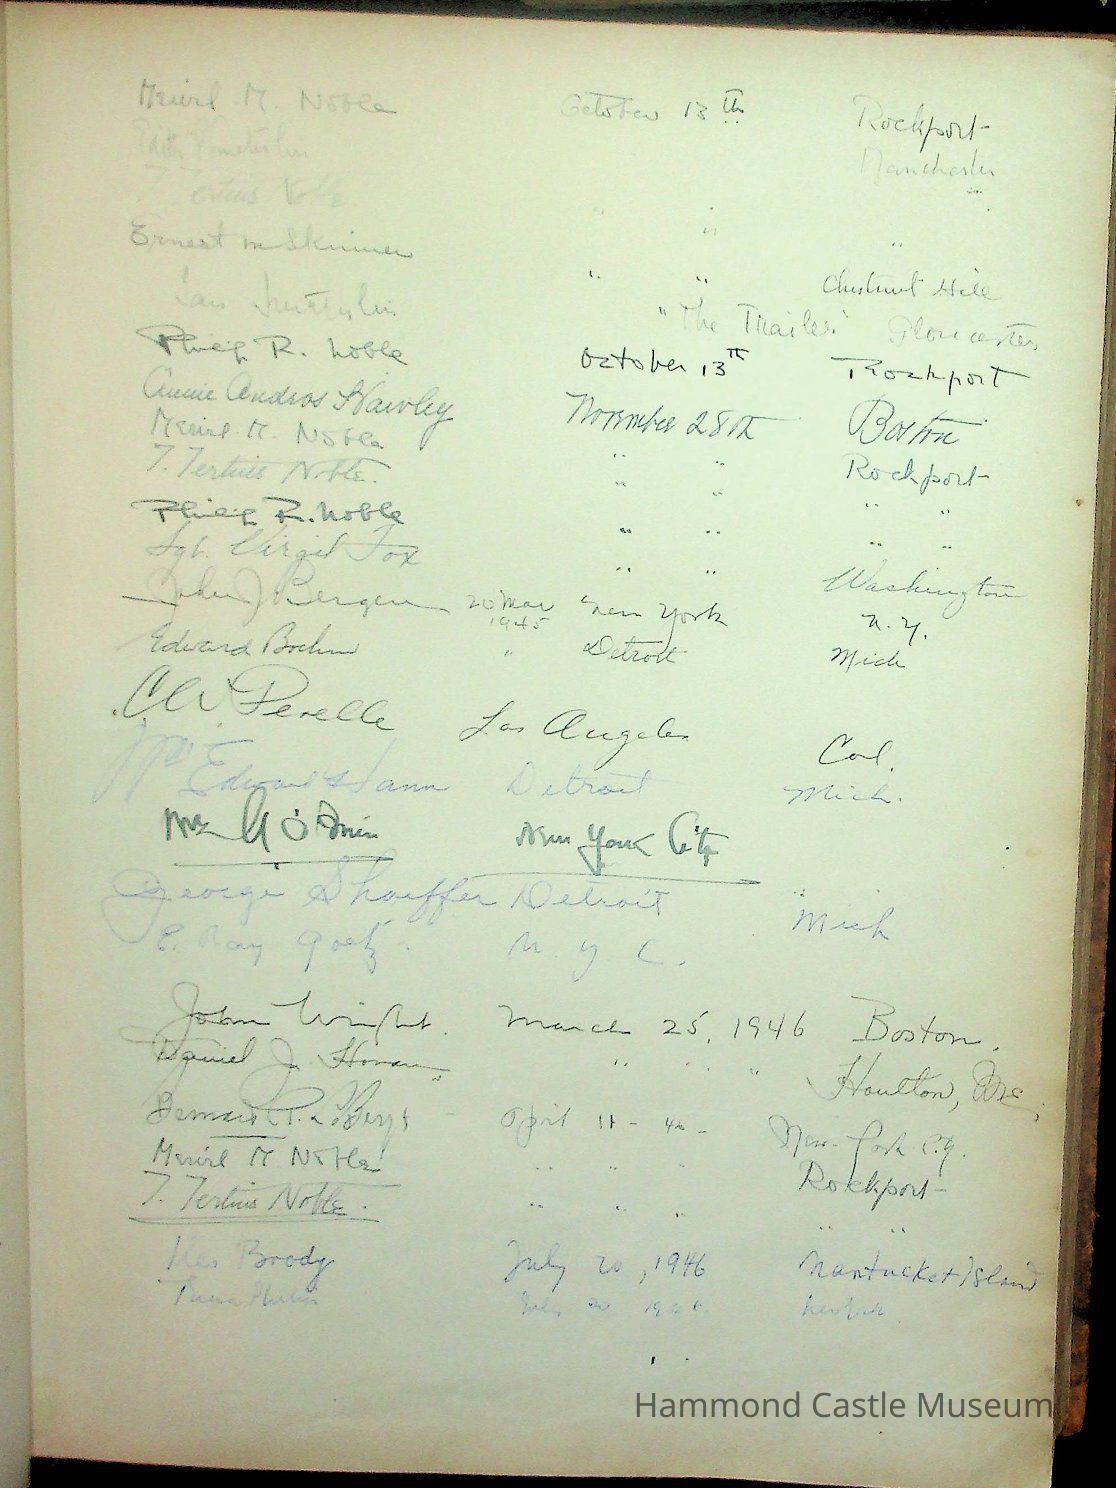 Meiril M. Noble October 13th Rockport
Edith Manchester
T. Tertius Noble " " "
Ernest M Skinner " " Chestnut Hill
"The Trailer" Gloucester
Philip R. Noble October 13th Rockport
Annie Andros Hawley November 28th Boston
Meiril M. Noble " " Rockport
T. Tertius Noble. " " " "
Philip R. Noble " " " "
Sgt. Virgil Fox " " Washington
John J Bergen 20 Mar 1945 New York N.Y.
Edward Boehm " Detroit Mich
C W Perelle Los Angeles Cal.
Edward Detroit Mich.
New York City
George Shouffer Detroit Mich
E. Ray Goetz N. Y. C.
John Wright. March 25, 1946 Boston.
Daniel J. " " Houlton, Me.
April New York
Meiril M Noble " " " Rockport
T. Tertius Noble. " " " " "
Brody July 20, 1946 Nantucket Island
Hammond Castle Museum